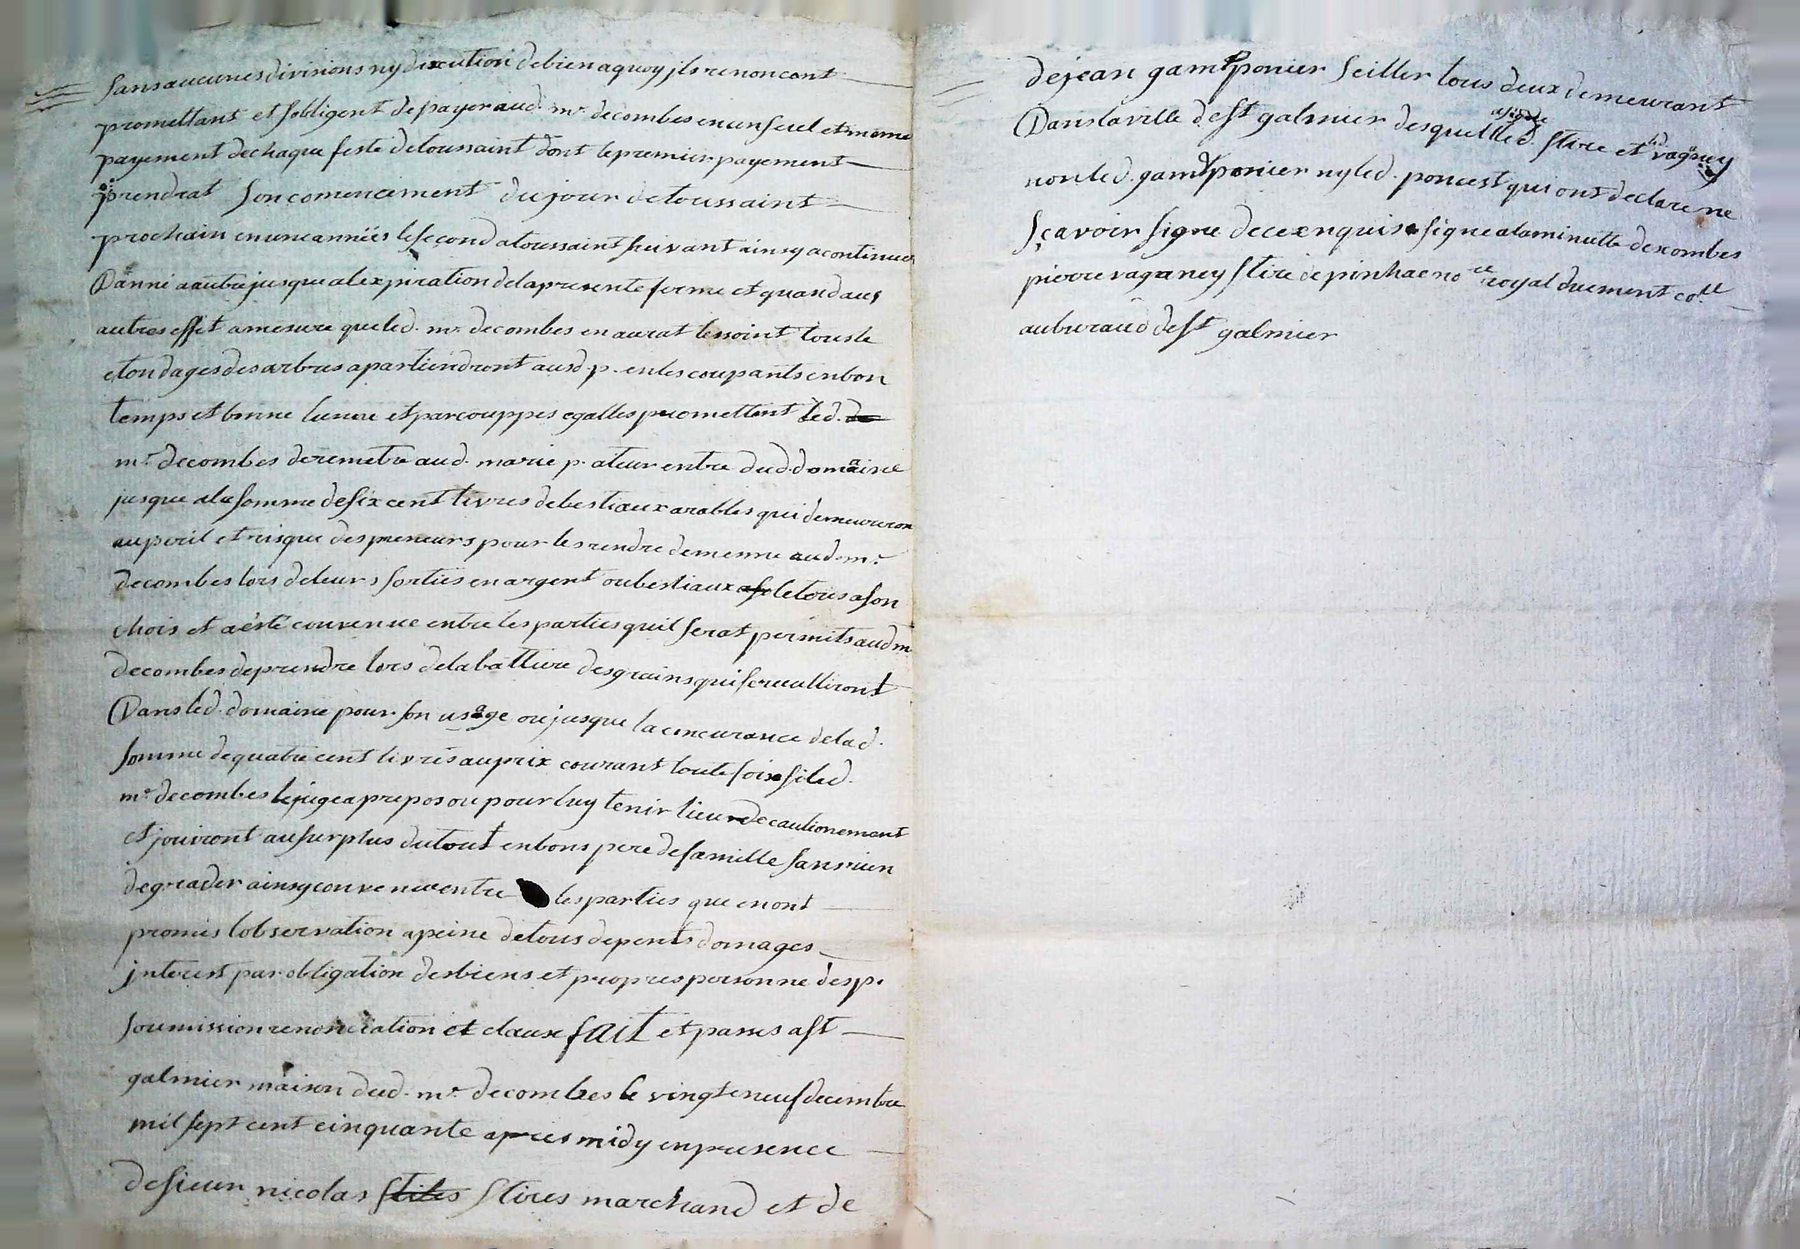 sans aucunes divisions ny dixcution de bien a quoy jls renoncent
promettant et sobligent de payer aud. mr. decombes en un seul et meme
payement de chaque feste de toussaint dont le premier payement
prendrat son comencement du jour de toussaint
prochain en une années le second a toussaint suivant ainsy a continuer
Danné a autre jusque a lexpiration de la presente ferme et quand aus
autres effet a mesure que led. mr. decombes en aurat besoint tous le
etondages des arbres apartiendront ausd. p. en les coupants en bon
temps et bonne lune et par couppes egalles promettent led. de
mr. decombes de remetre aud. marie p. a leur entre dud. domaine
jusque a la somme de six cent livres de bestiaux arables qui demeureron
au peril et risque des preneurs pour les rendre de meme aud. mr.
decombes lors de leurs sorties en argent ou bestiaux le tous a son
chois et a esté convenue entre les parties quil serat permits aud m
decombes de prendre lors de la batture des grains qui se
Dans led. domaine pour son usage ou jusque la concurance de lad.
somme de quatre cent livres au prix courant toute fois si led.
mr. decombes le juge a propos ou pour luy tenir lieu de cautionement
et jouiront au surplus du tout en bons pere de famille sans rien
degrader ainsy convenue entre les parties que en ont
promis lobservation a peine de tous depents domages
jnterest par obligation des biens et propres personne des p.
soumission renonciation et claux fait et passés a st
galmier maison dud. mr. decombes le vingt neuf decembre
mil sept cent cinquante apres midy en presence
de sieur nicolas stires marchand et de
de jean gamponier seiller tous deux demeurant
Dans la ville de st galmier desquel led. stire et led vaganey
non led. gamponier ny led. poncest qui ont declare ne
sçavoir signe de ce enquis signe a la minutte descombes
pierre vaganey stire de pinhac nore royal duement coll
au buraud de st galmier